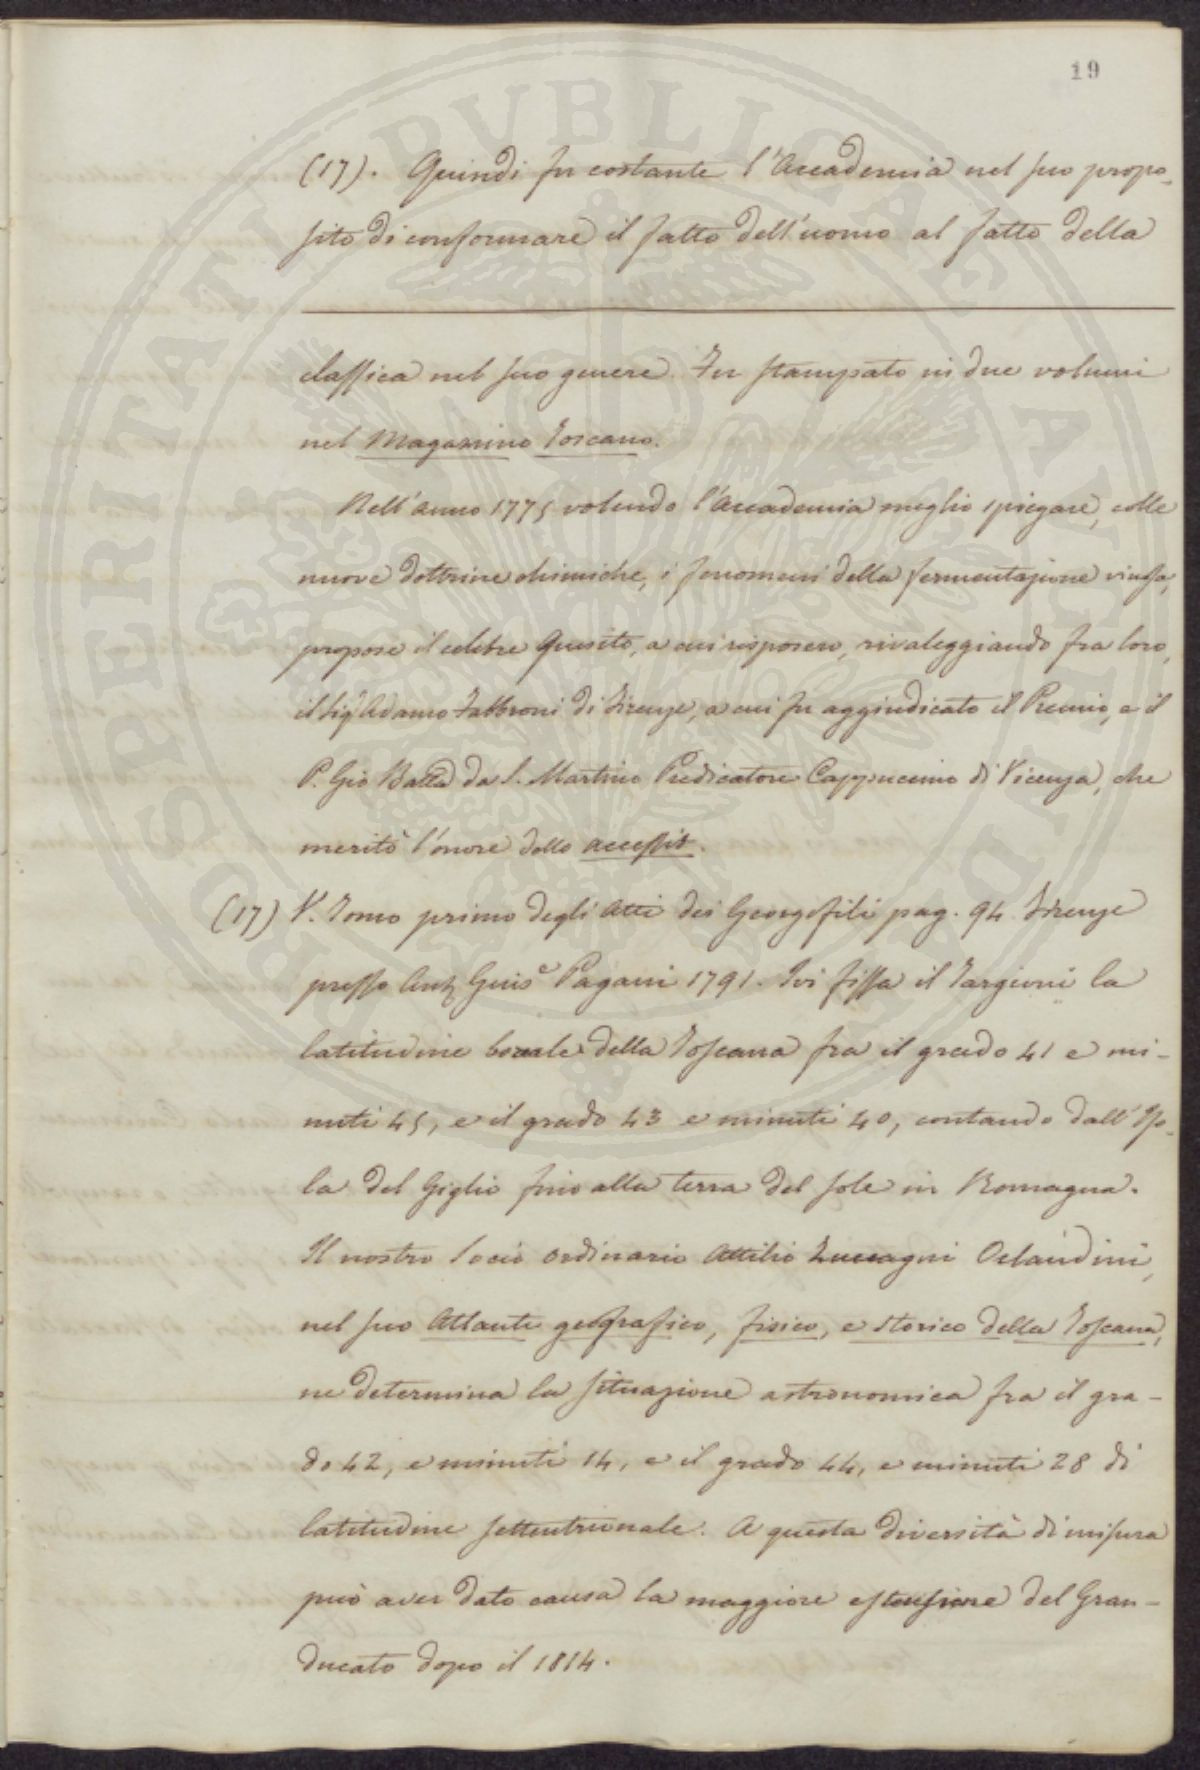 19
(17). Quindi fu costante l'Accademia nel suo propo-
sito di conformare il fatto dell'uomo al fatto della
classica nel suo genere. Fu stampato in due volumi
nel Magazzino Toscano.
Nell'anno 1775 volendo l'Accademia meglio spiegare, colle
nuove dottrine chimiche, i fenomeni della fermentazione vinosa,
propose il celebre Quesito, a cui risposero, rivaleggiando fra loro,
il Sigr Adamo Fabbroni di Firenze, a cui fu aggiudicato il Premio, e il
P. Gio Batta da S. Martino Predicatore Cappuccino di Vicenza, che
meritò l'onore dello accessit.
(17) V. Tomo primo degli Atti dei Georgofili pag. 94 Firenze
presso Ant. Giuse Pagani 1791. Ivi fissa il Targioni la
latitudine boreale della Toscana fra il grado 41 e mi-
nuti 45, e il grado 43 e minuti 40, contando dall'Iso-
la del Giglio fino alla terra del sole in Romagna.
Il nostro Socio ordinario Attilio Zuccagni Orlandini,
nel suo Atlante geografico, fisico, e storico della Toscana,
ne determina la situazione astronomica fra il gra-
do 42, e minuti 14, e il grado 44, e minuti 28 di
latitudine settentrionale. A questa diversità di misura
può aver dato causa la maggiore estensione del Gran-
ducato dopo il 1814.
PROSPERITATI PUBLICAE AUGENDAE